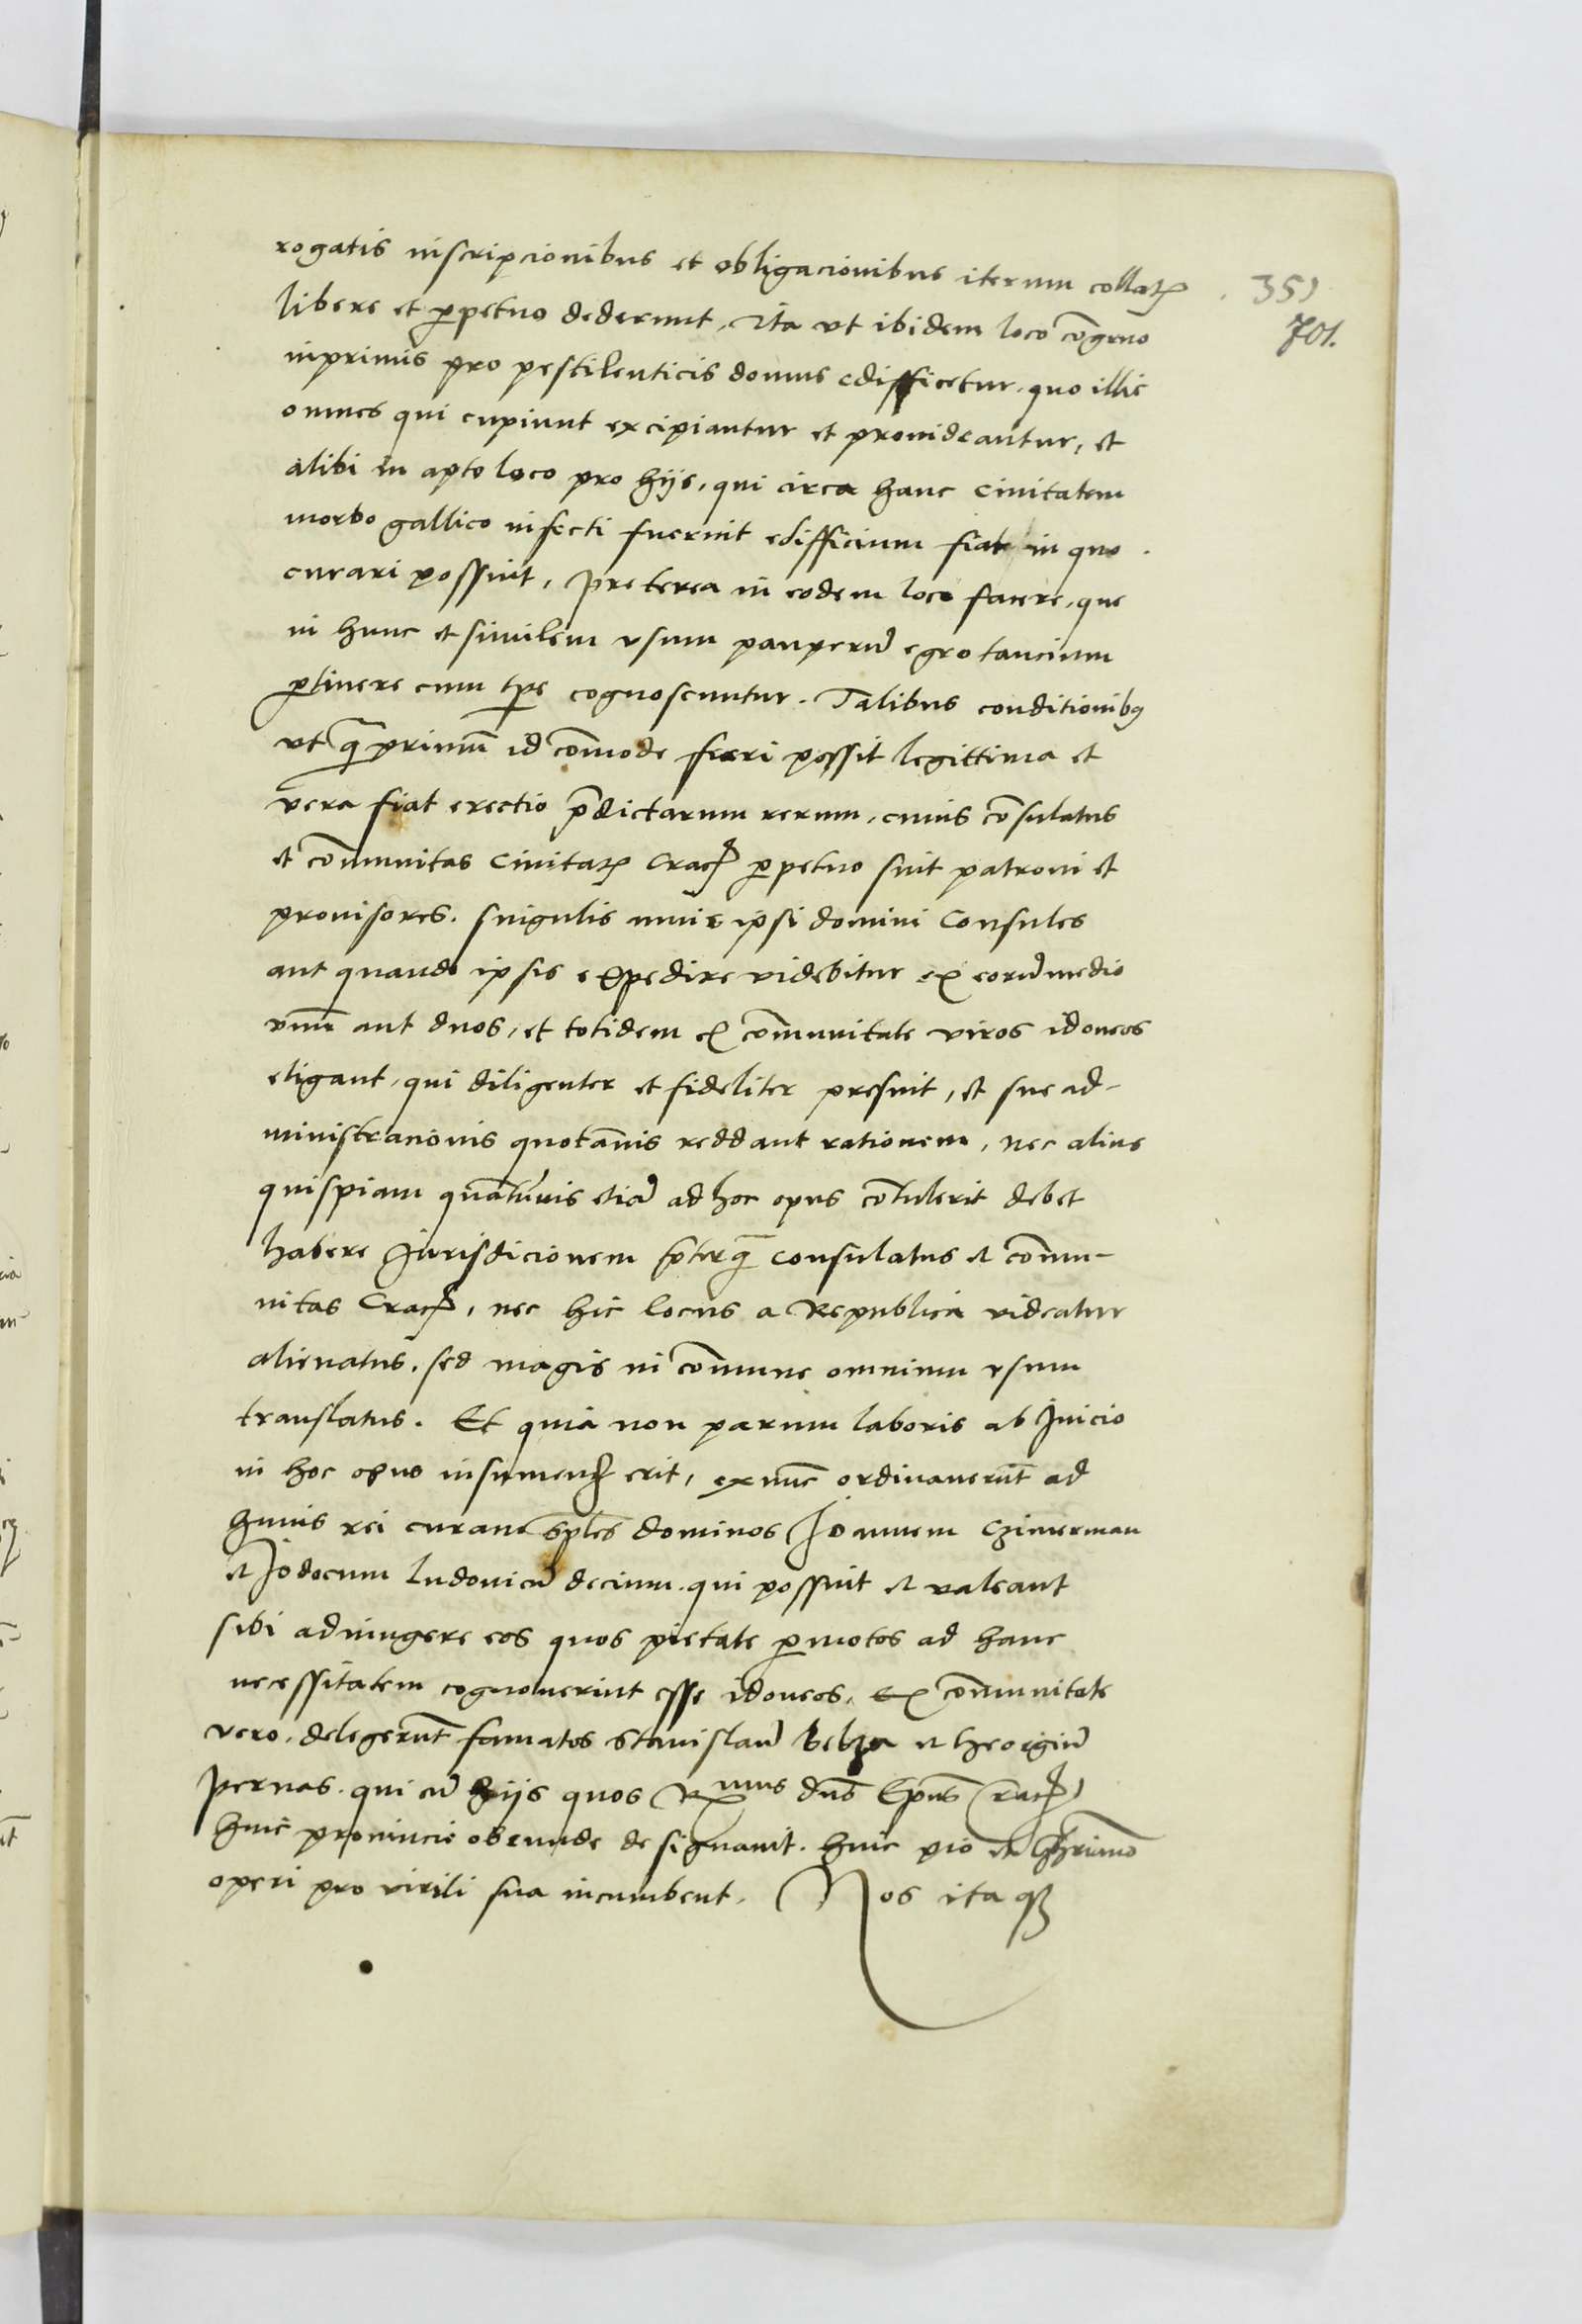 rogatis inscripcionibus et obligacionibus iterum collatꝫ
libere et ꝑpetuo dederunt, Ita vt ibidem loco co͞gruo
inprimis pro pestilenticis domus edifficetur, quo illic
omnes qui cupiunt excipiantur et prouideantur, et
alibi in apto loco pro hijs, qui circa hanc Ciuitatem
morbo gallico infecti fuerint edifficium fiat in quo
curari possint, preterea in eodem loco facere, que
in hunc et similem vsum pauperu͞ egrotancium
ꝑtinere cum tp͞e cognoscuntur. Talibus conditionibꝫ
vt q͞ primu͞ id co͞mode fieri possit legittima et
vera fiat erectio p͞dictarum rerum, cuius Co͞sulatus
et co͞munitas Ciuitatꝫ Crac͞ ꝑpetuo sint patroni et
prouisores. Singulis annis ipsi domini Consules
aut quando ipsis expedire videbitur ex eoru͞ medio
vnu͞ aut duos, et totidem ex co͞munitate viros idoneos
eligant, qui diligenter et fideliter presint, et sue ad-
ministracionis quota͞nis reddant rationem, nec alius
quispiam qua͞tu͞uis etia͞ ad hoc opus co͞tulerit debet
habere Jurisdicionem p͞terq͞ Consulatus et co͞mu-
nitas Crac͞, nec hic locus a Republica videatur
alienatus. sed magis in co͞mune omnium vsum
translatus. Et quia non parum laboris ab Inicio
in hoc opus insumen͞ erit, ex nu͞c ordinaueru͞t ad
huius rei curam sp͞les dominos Joannem Czimerman
et Jodocum Ludouicu͞ decium. qui possint et valeant
sibi adiungere eos quos pietate ꝑmotos ad hanc
necessitatem cognouerint esse idoneos. Ex co͞munitate
vero, delegeru͞t famatos Stanislau͞ belza et Georgiu͞
pernas. qui cu͞ hijs quos Rmus dn͞s Ep͞us Crac͞
huic prouincie obeunde designauit. huic pio et
operi pro virili sua incumbent. Nos itaqꝫ
351
701.